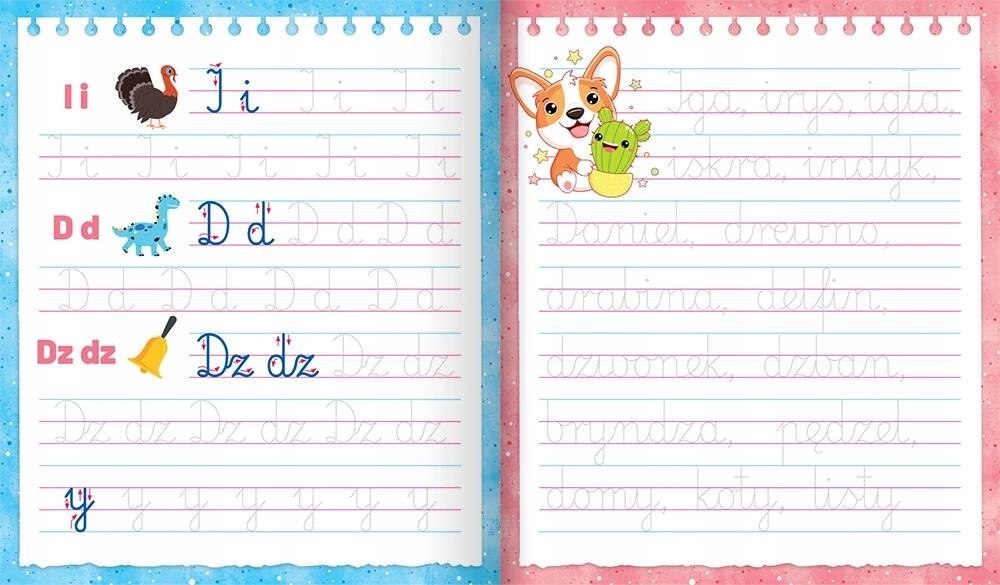 I i I i I i I i
I i I i I i I i I i I i
D d D d D d D d
D d D d D d D d D d D d
Dz dz Dz dz Dz dz
Dz dz Dz dz Dz dz
y y y y y y y
Iga, irys, igła,
iskra, indyk,
Daniel, drewno,
drabina, delfin,
dzwonek, dzban,
bryndza, pędzel,
domy, koty, listy